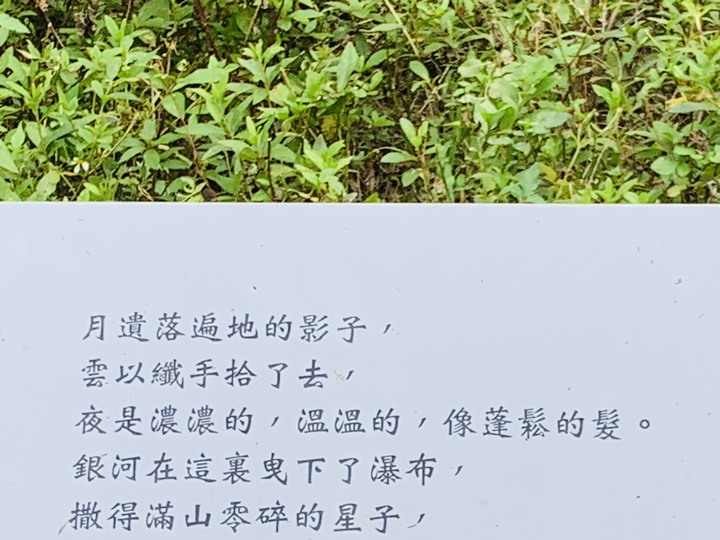 月遺落遍地的影子，
雲以纖手拾了去，
夜是濃濃的，溫溫的，像蓬鬆的髮。
銀河在這裏曳下了瀑布，
撒得滿山零碎的星子，